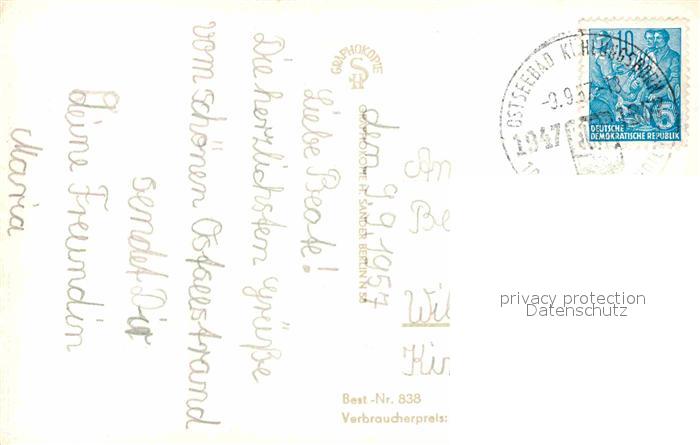 den 9.9.1957
Liebe Beate!
Die herzlichsten Grüße
vom schönen Ostseestrand
sendet Dir
Deine Freundin
Maria
GRAPHOKOPIE
GRAPHOKOPIE H. SANDER BERLIN N 58
An
Be
Wil
Kir
Best-Nr. 838
Verbraucherpreis:
OSTSEEBAD KÜHLUNGSBORN
-9.9.57
10
5
DEUTSCHE
DEMOKRATISCHE REPUBLIK
privacy protection
Datenschutz